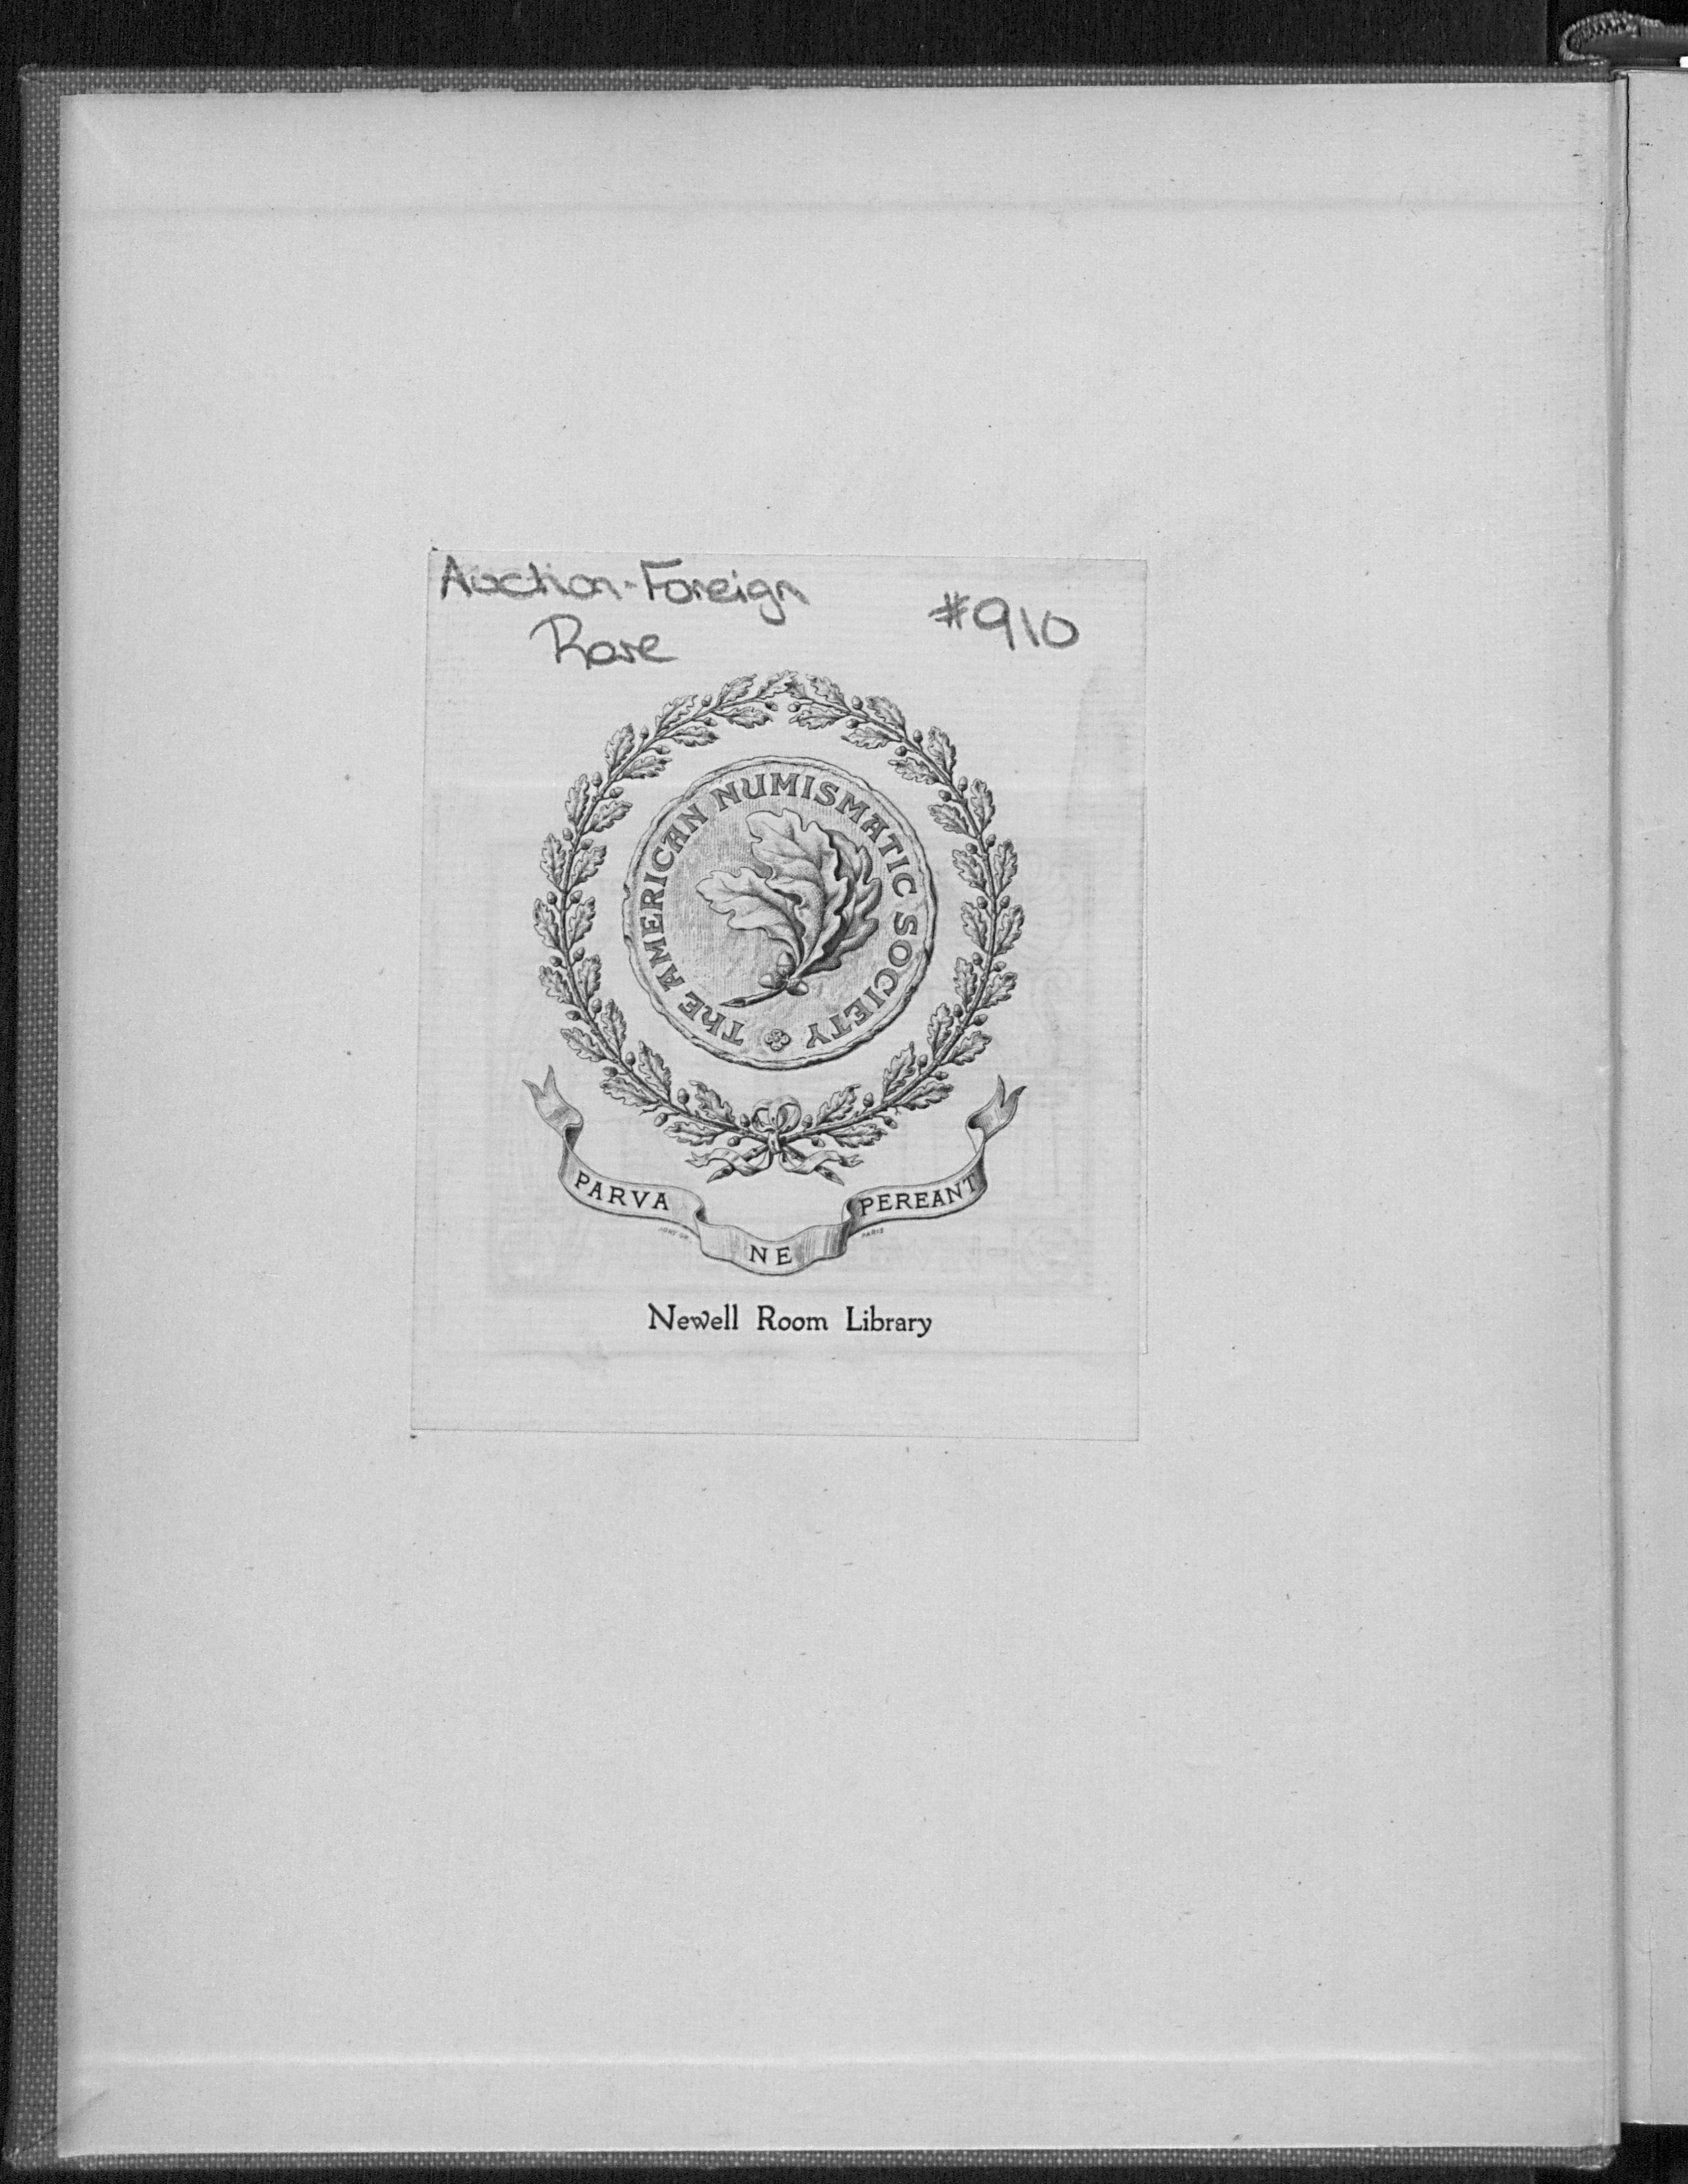 Auction-Foreign
Rare
#910
THE AMERICAN NUMISMATIC SOCIETY
PARVA NE PEREANT
PARIS
Newell Room Library